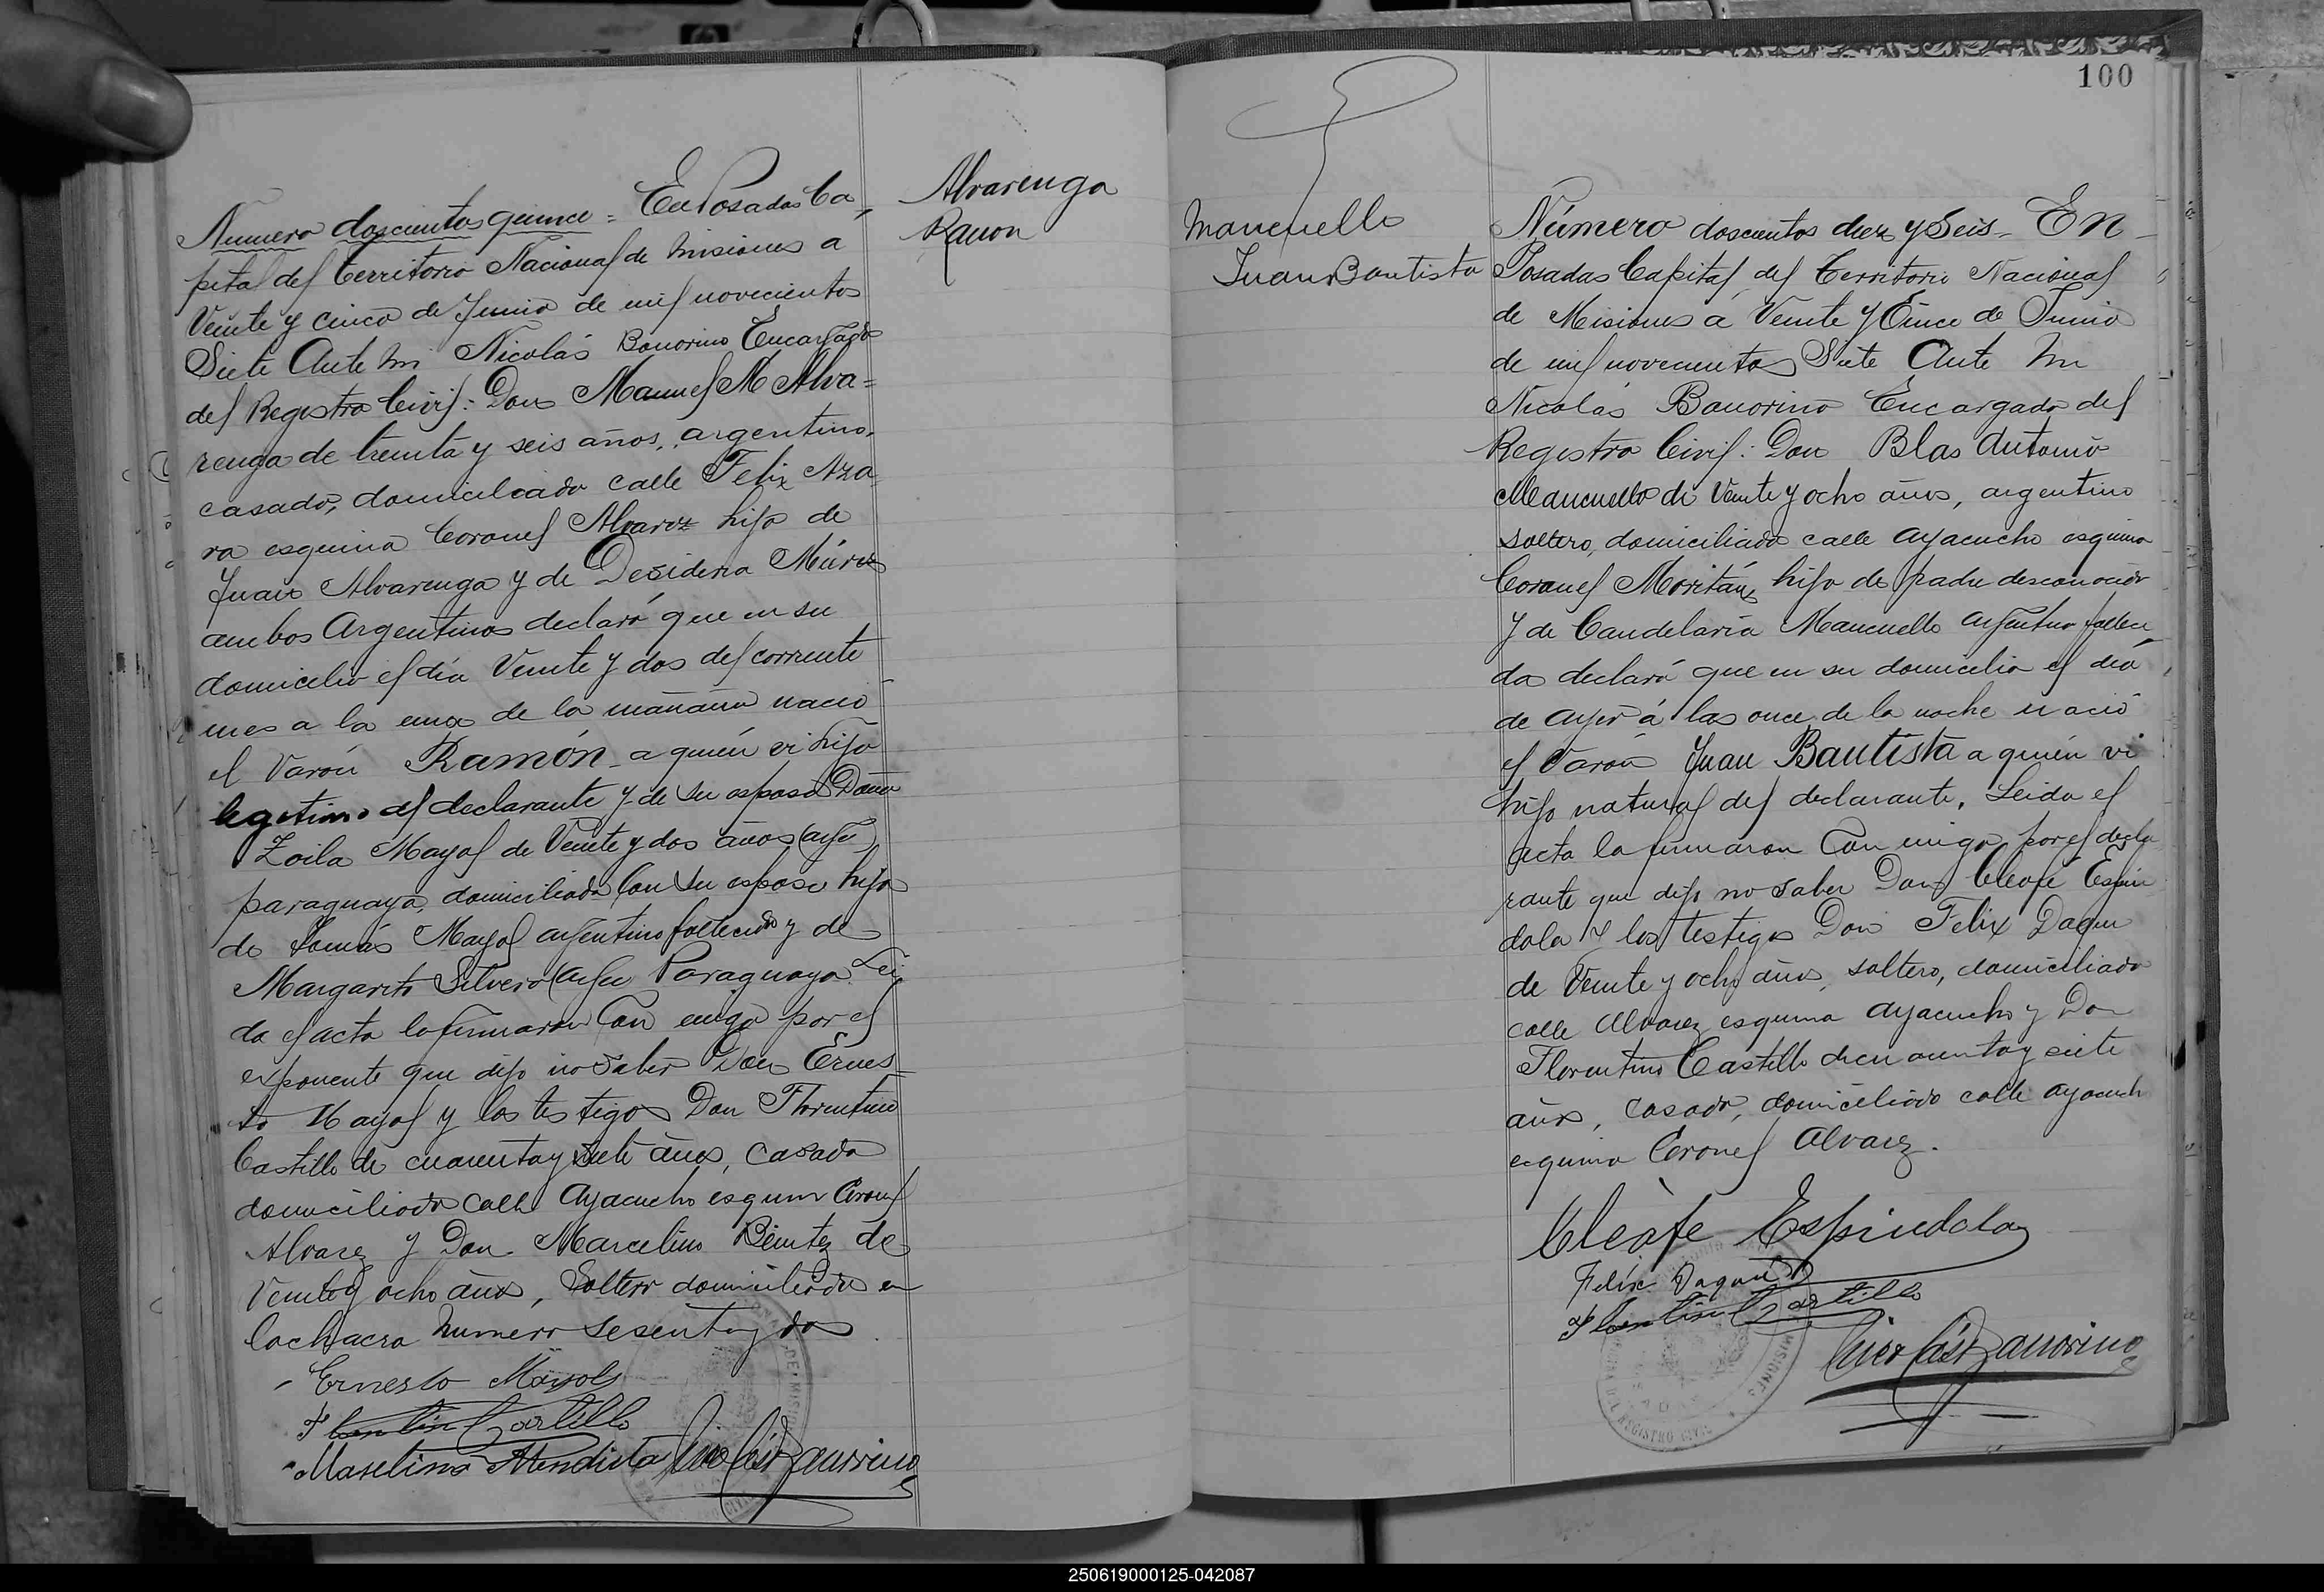 Alvarenga
Ramon
Numero doscientos quince = En Posadas Ca
pital del Territorio Nacional de Misiones a
Veinte y cinco de Junio de mil novecientos
Siete Ante Mi Nicolás Bonorino Encargado
del Registro Civil: Don Manuel M Alva=
renga de treinta y seis años, argentino,
casado, domiciliado calle Felix Aza
ra esquina Coronel Alvarez hijo de
Juan Alvarenga y de Desideria
ambos Argentinos declaró que en su
domicilio el día Veinte y dos del corriente
mes a la una de la mañana nació
el Varón Ramón a quién vi hijo
legitimo del declarante y de su esposa Doña
Zoila Mayol de Veinte y dos años
paraguaya, domiciliada Con su esposo hija
de Tomás Mayol argentino fallecido y de
Margarita Silvero Paraguaya. Lei
da el acta la firmaron Con migo por el
exponente que dijo no Saber Don Ernes
to Mayol y los testigos Don Florentino
Castillo de cuarenta y siete años, Casado
domiciliado calle Ayacucho esquina Coronel
Alvarez y Don Marcelino Benitez de
Veinte y ocho años, Soltero domiciliado en
la chacra numero sesenta y dos
Ernesto Mayol
Florentin Castillo
Nicolás Bonorino
100
Mancuello
Juan Bautista
Número doscientos diez y Seis - En
Posadas Capital del Territorio Nacional
de Misiones á Veinte y Cinco de Junio
de mil novecientos Siete Ante Mi
Nicolás Bonorino Encargado del
Registro Civil: Don Blas Antonio
Mancuello de Veinte y ocho años, argentino
soltero, domiciliado calle Ayacucho esquina
Coronel Moritán, hijo de padre desconocido
y de Candelaria Mancuello argentina falleci
da declaró que en su domicilio el día
de Ayer á las once de la noche nació
el Varón Juan Bautista a quién vi
hijo natural del declarante. Leida el
acta la firmaron Con migo por el decla
rante que dijo no saber Don Cleofé Espin
dola y los testigos Don Felix Daqui
de Veinte y ocho años, soltero, domiciliado
calle Alvarez esquina Ayacucho y Don
Florentino Castillo de cuarenta y siete
años, Casado, domiciliado calle Ayacucho
esquina Coronel Alvarez.
Cleofe Espindola
Felix Daqui
Florentin Castillo
Nicolás Bonorino
REGISTRO CIVIL
MISIONES
250619000125-042087